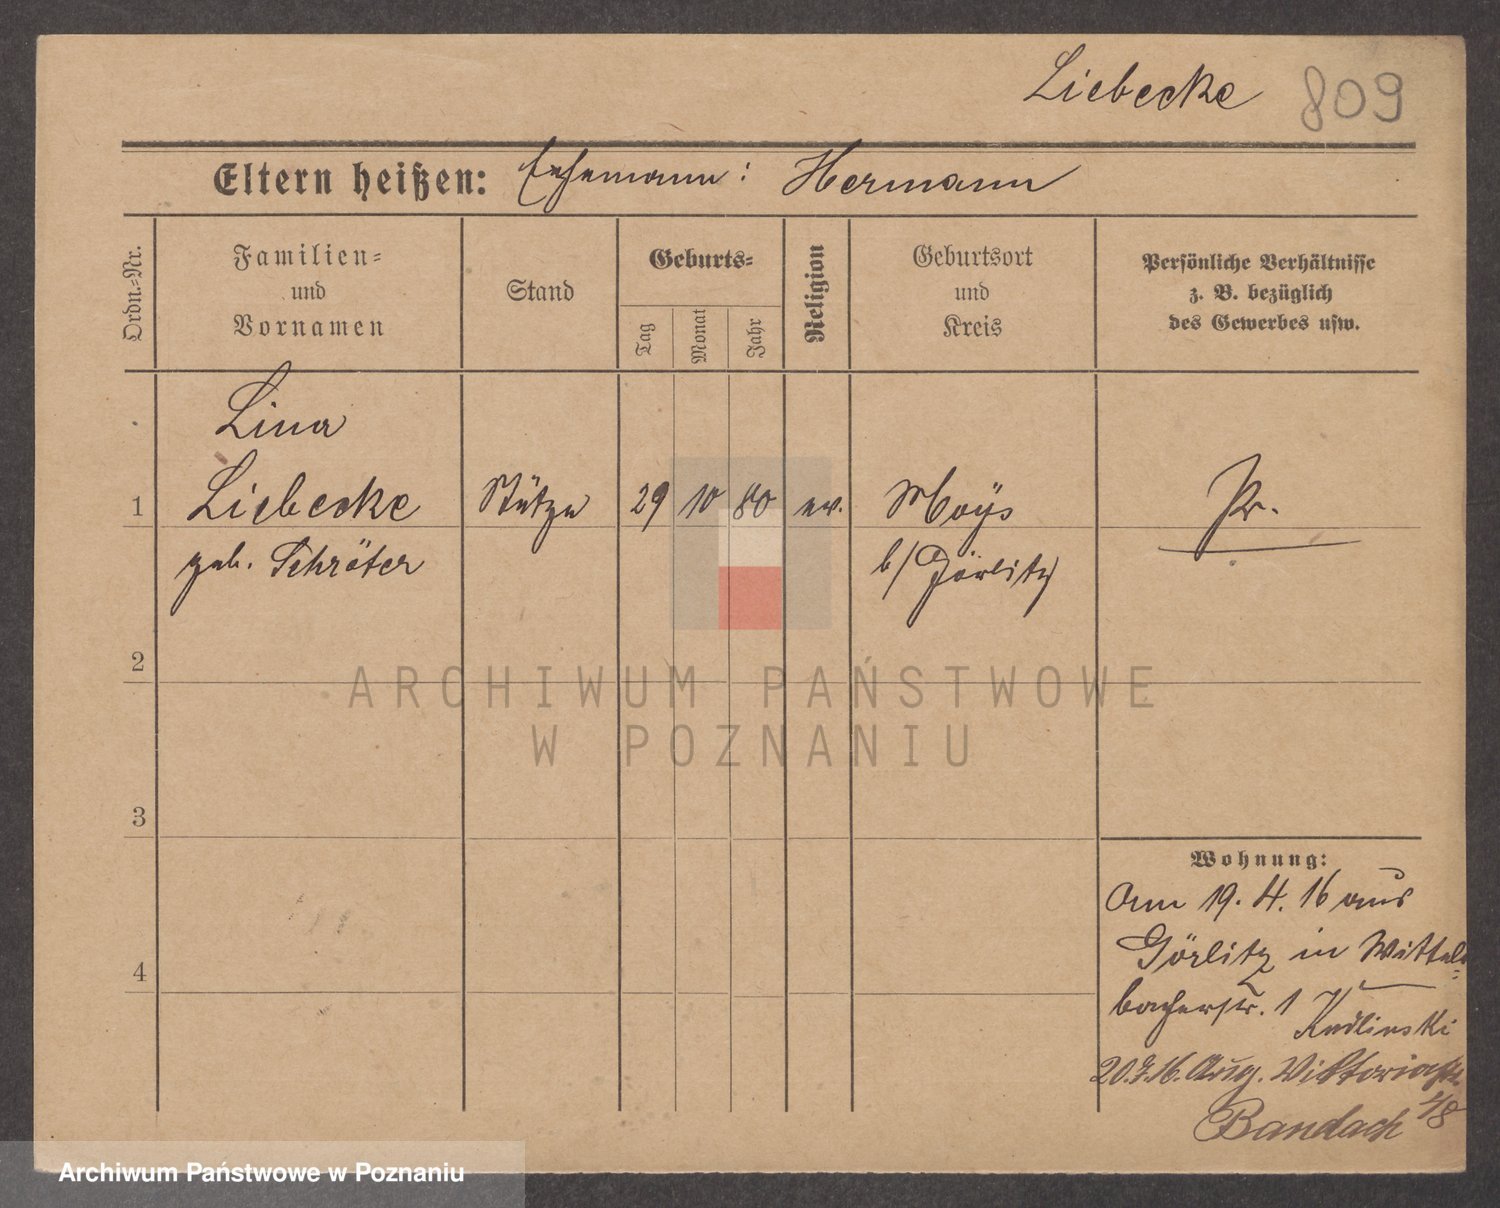 Liebecke 809
Eltern heißen: Ehemann: Hermann
Ordn.-Nr.
Familien-
und
Vornamen
Stand
Geburts-
Tag
Monat
Jahr
Religion
Geburtsort
und
Kreis
Persönliche Verhältnisse
z. B. bezüglich
des Gewerbes usw.
Lina
1 Liebecke Stütze 29 10 80 ev. Moÿs Pr.
geb. Schröter b/Görlitz
2
ARCHIWUM PAŃSTWOWE
W POZNANIU
3
Wohnung:
Am 19. 4. 16 aus
Görlitz in Wittels-
4
bacherstr. 1
Kudlinski
20.7.16. Aug. Viktoriastr.
Bandach
Archiwum Państwowe w Poznaniu